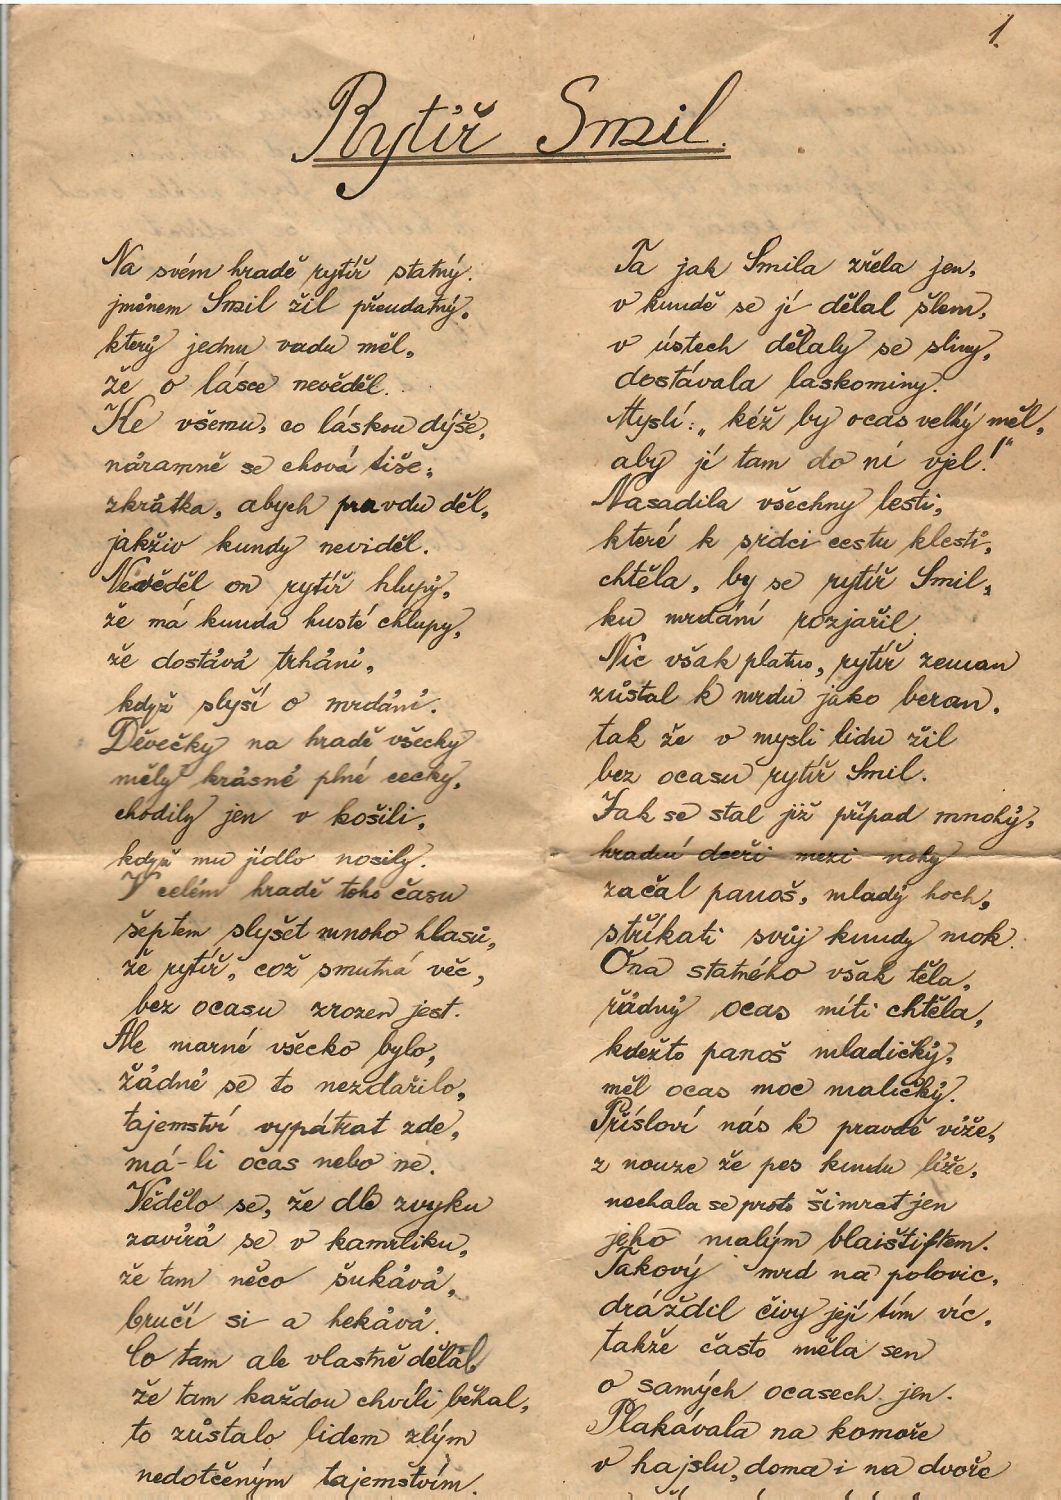 1.
Rytíř Smil.
Na svém hradě rytíř statný.
jménem Smil žil přeudatný,
který jednu vadu měl,
že o lásce nevěděl.
Ke všemu, co láskou dýše,
náramně se chová tiše,
zkrátka, abych pravdu děl,
jakživ kundy neviděl.
Nevěděl on rytíř hlupý,
že má kunda husté chlupy,
že dostává trhání,
když slyší o mrdání.
Děvečky na hradě všecky
měly krásné plné cecky,
chodily jen v košili,
když mu jídlo nosily.
V celém hradě toho času
šeptem slyšet mnoho hlasů,
že rytíř, což smutná věc,
bez ocasu zrozen jest.
Ale marné všecko bylo,
žádné se to nezdařilo,
tajemství vypátrat zde,
má-li očas nebo ne.
Vědělo se, že dle zvyku
zavírá se v kamrliku,
že tam něco šukává,
bručí si a hekává.
Co tam ale vlastně dělal
že tam každou chvíli běhal,
to zůstalo lidem zlým
nedotčeným tajemstvím.
Ta jak Smila zřela jen,
v kundě se jí dělal šlem,
v ústech dělaly se sliny,
dostávala laskominy.
Myslí: „kéž by ocas velký měl,
aby jí tam do ní vjel!"
Nasadila všechny lesti,
které k srdci cestu klestí,
chtěla, by se rytíř Smil,
ku mrdání rozjařil.
Nic však platno, rytíř zeman
zůstal k mrdu jako beran,
tak že v mysli lidu žil
bez ocasu rytíř Smil.
Jak se stal již případ mnohý,
hradní dceři mezi nohy
začal panoš, mladý hoch,
stříkati svůj kundy mok.
Ona statného však těla,
řádný ocas míti chtěla,
kdežto panoš mladičký,
měl ocas moc maličký.
Přísloví nás k pravdě víže,
z nouze že pes kundu líže,
nechala se proto šimrat jen
jeho malým blaištiftem.
Takový mrd na polovic,
dráždil čivy její tím víc,
takže často měla sen
o samých ocasech jen.
Plakávala na komoře
v hajslu, doma i na dvoře